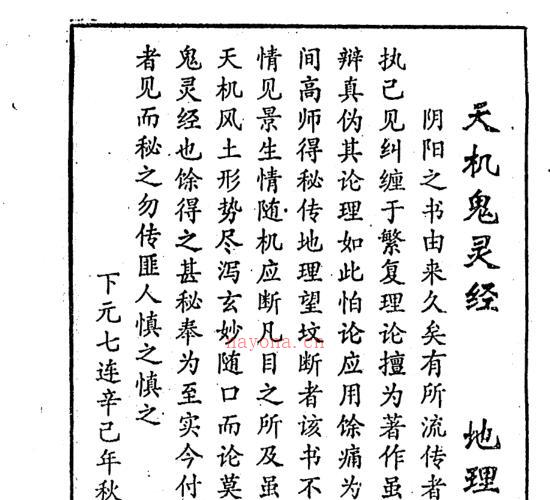 天机鬼灵经 地理
阴阳之书由来久矣有所流传者
执己见纠缠于繁复理论擅为著作虽
辩真伪其论理如此怕论应用馀痛为
间高师得秘传地理望坟断者该书不
情见景生情随机应断凡目之所及虽
天机风土形势尽泻玄妙随口而论莫
鬼灵经也馀得之甚秘奉为至实今付
者见而秘之勿传匪人慎之慎之
下元七连辛己年秋
nayona.cn